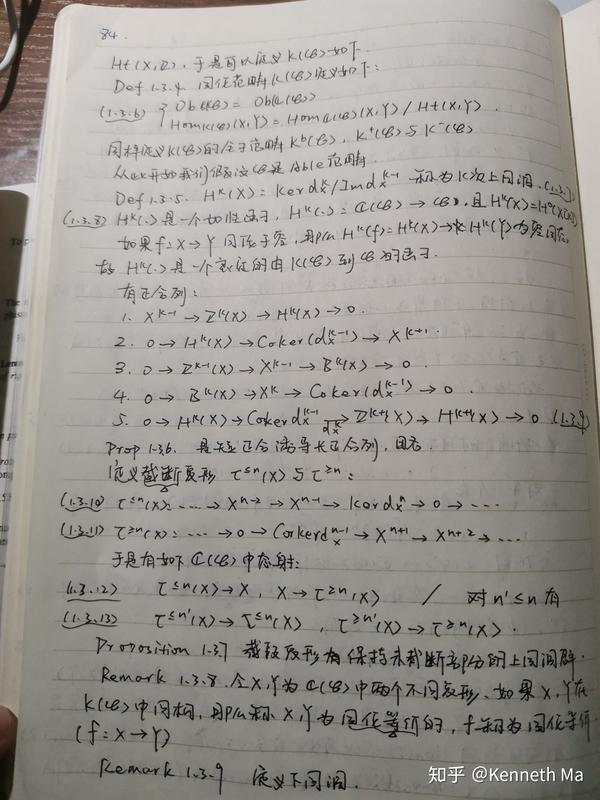 84.
Ht(X,Y), 于是可以定义 K(𝒞) 如下.
Def 1.3.4. 同伦范畴 K(𝒞) 定义如下:
(1.3.6) { Ob(K(𝒞)) = Ob(C(𝒞))
Hom_{K(𝒞)}(X,Y) = Hom_{C(𝒞)}(X,Y) / Ht(X,Y).
同样定义 K(𝒞) 的全子范畴 K^b(𝒞), K^+(𝒞) 与 K^-(𝒞)
从此开始我们假设 𝒞 是 Able 范畴.
Def 1.3.5. H^k(X) = Ker d_X^k / Im d_X^{k-1} 称为 k 次上同调. (1.3.7)
(1.3.8) H^k(.) 是一个加性函子, H^k(.) = C(𝒞) → 𝒞, 且 H^k(X) = H^0(X[k])
如果 f: X → Y 同伦于零, 那么 H^k(f) = H^k(X) → H^k(Y) 为零同态.
故 H^k(.) 是一个良定的由 K(𝒞) 到 𝒞 的函子.
有正合列:
1. X^{k-1} → Z^k(X) → H^k(X) → 0.
2. 0 → H^k(X) → Coker(d_X^{k-1}) → X^{k+1}.
3. 0 → Z^{k-1}(X) → X^{k-1} → B^k(X) → 0.
4. 0 → B^k(X) → X^k → Coker(d_X^{k-1}) → 0.
5. 0 → H^k(X) → Coker d_X^{k-1} →_{d_X^k} Z^{k+1}(X) → H^{k+1}(X) → 0 (1.3.9)
Prop 1.3.6. 是短正合诱导长正合列, 同态.
定义截断复形 τ^{≤n}(X) 与 τ^{≥n}:
(1.3.10) τ^{≤n}(X): ⋯ → X^{n-2} → X^{n-1} → Ker d_X^n → 0 → ⋯
(1.3.11) τ^{≥n}(X): ⋯ → 0 → Coker d_X^{n-1} → X^{n+1} → X^{n+2} → ⋯
于是有如下 C(𝒞) 中态射:
(1.3.12) τ^{≤n}(X) → X, X → τ^{≥n}(X) / 对 n' ≤ n 有
(1.3.13) τ^{≤n'}(X) → τ^{≤n}(X), τ^{≥n'}(X) → τ^{≥n}(X).
Proposition 1.3.7 截段复形有保持未截断部分的上同调群.
Remark 1.3.8. 令 X, Y 为 C(𝒞) 中两个不同复形. 如果 X, Y 在
K(𝒞) 中同构, 那么称 X, Y 为同伦等价的, f 称为同伦等价
(f: X → Y)
Remark 1.3.9 定义下同调.
知乎 @Kenneth Ma